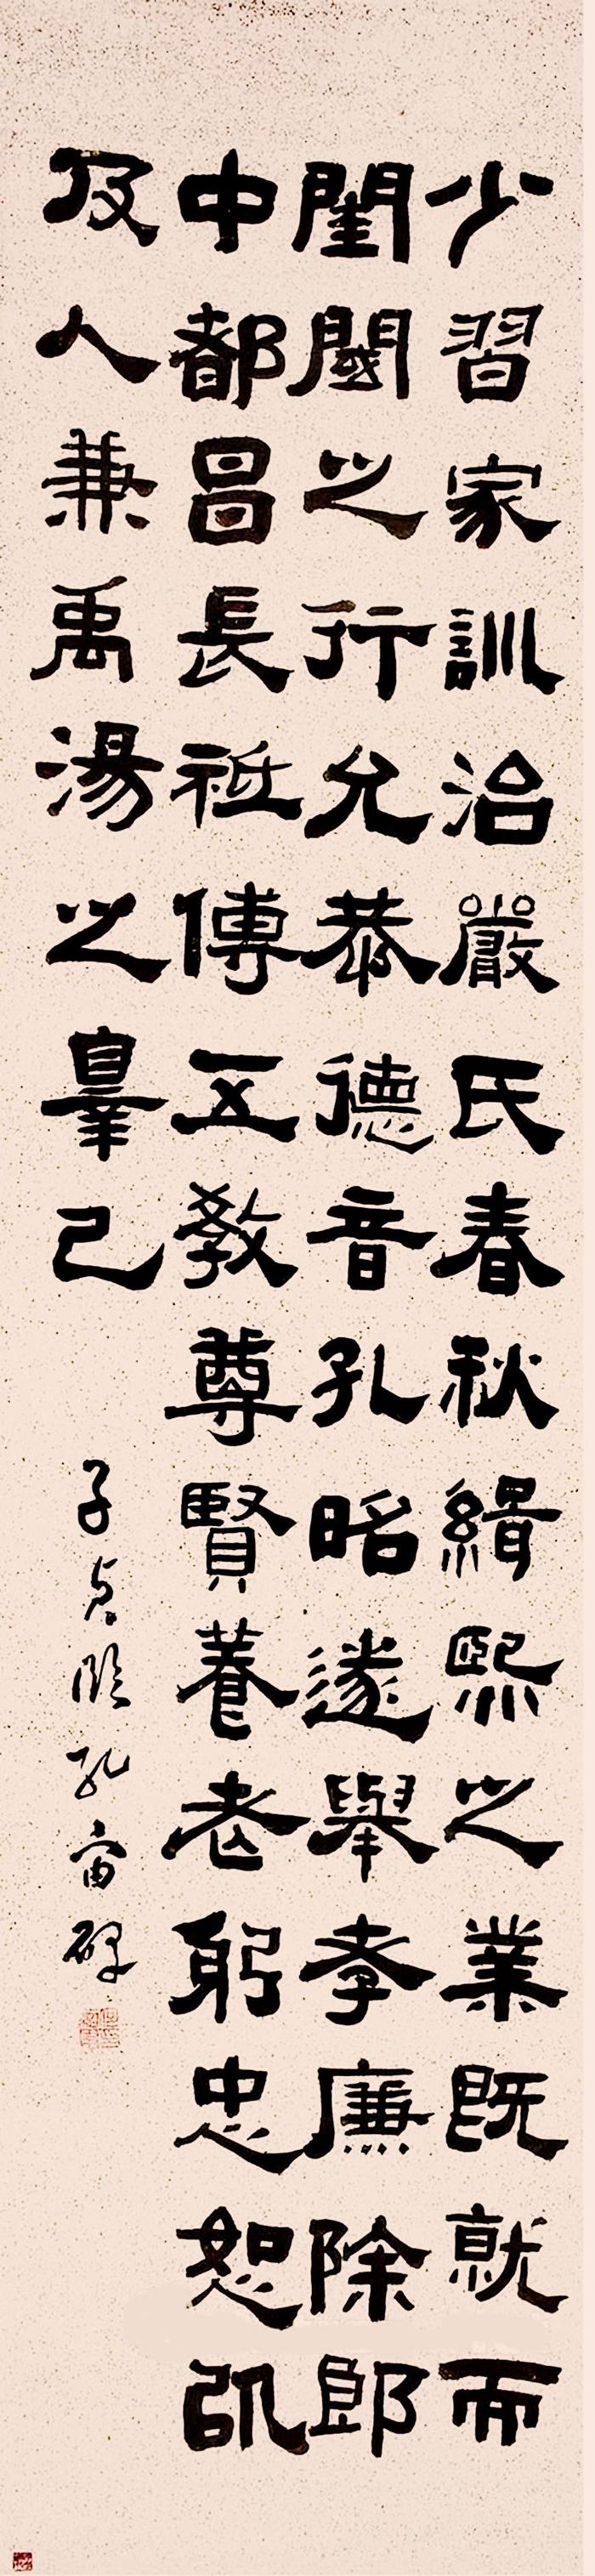 少習家訓治嚴氏春秋緝熙之業既就而
閨閾之行允恭德音孔昭遂舉孝廉除郎
中都昌長祗傅五教尊賢養老躬忠恕以
及人兼禹湯之辠己
子貞臨孔宙碑